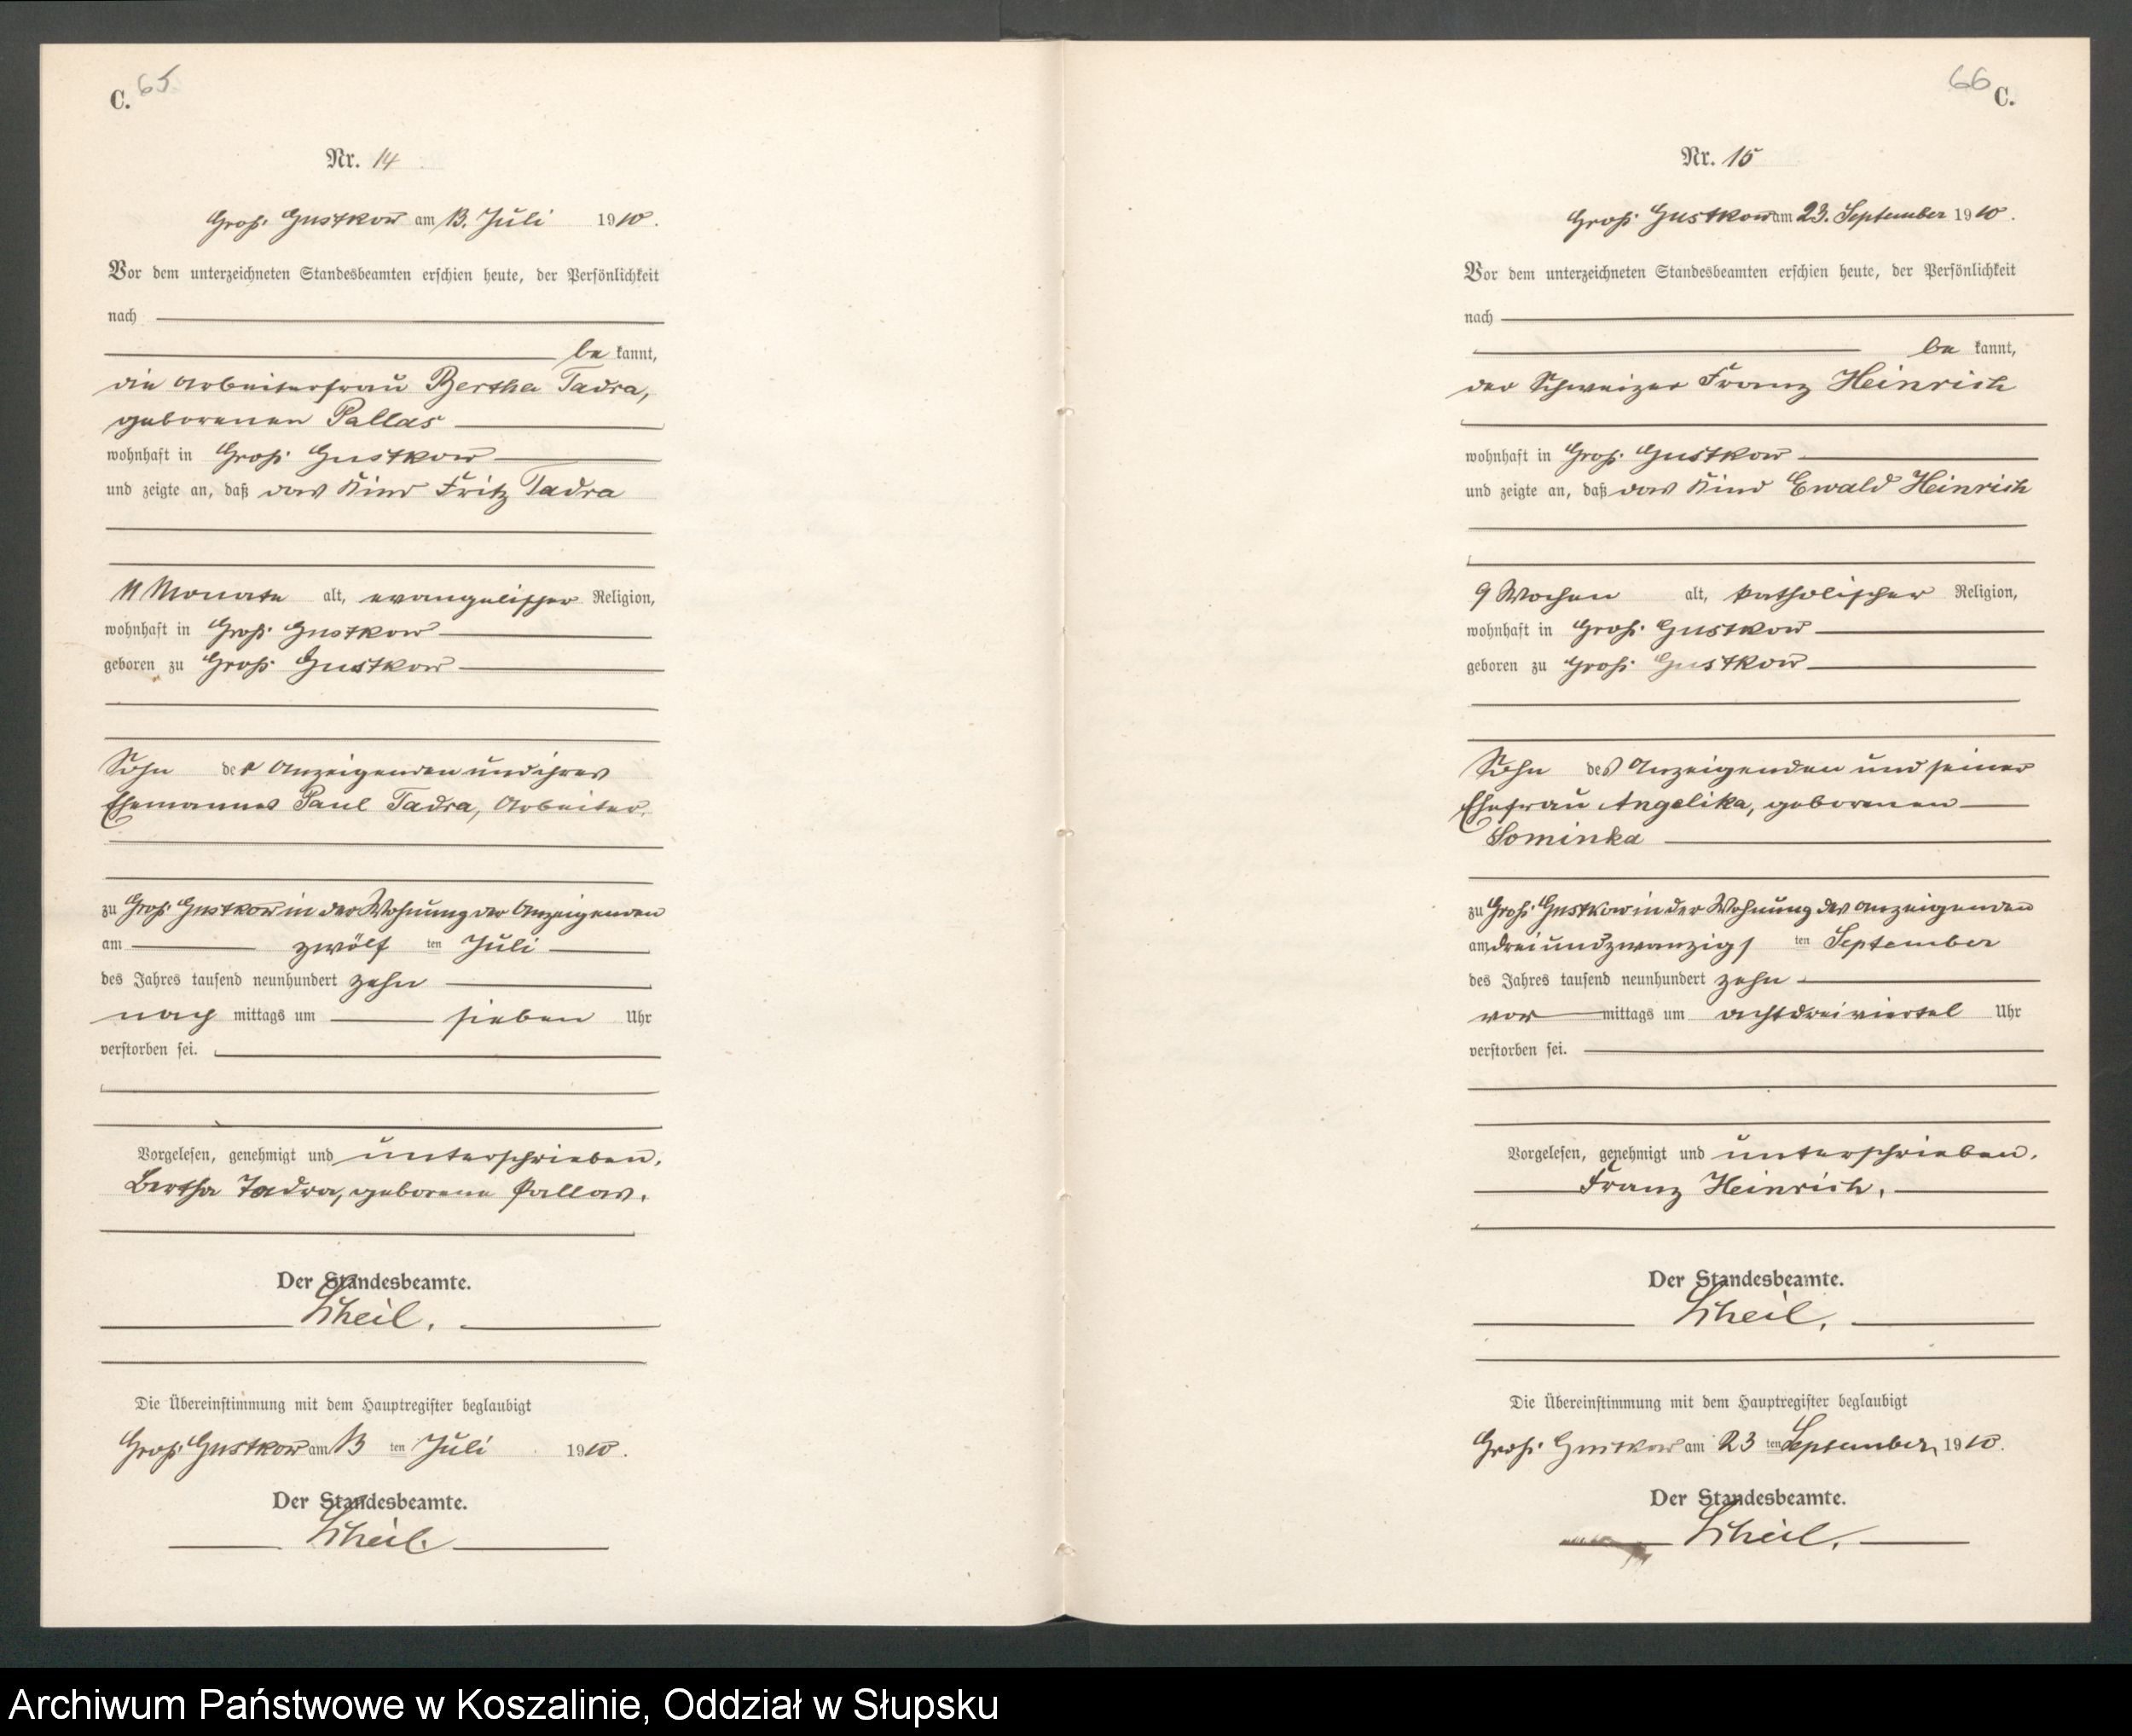 C. 65
Nr. 14
Groß Gustkow am 13. Juli 1910.
Vor dem unterzeichneten Standesbeamten erschien heute, der Persönlichkeit
nach
be kannt,
die Arbeiterfrau Bertha Tadra,
geborenen Pallas
wohnhaft in Groß Gustkow
und zeigte an, daß das Kind Fritz Tadra
11 Monate alt, evangelischer Religion,
wohnhaft in Groß Gustkow
geboren zu Groß Gustkow
Sohn der Anzeigenden und ihres
Ehemannes Paul Tadra, Arbeiter.
zu Groß Gustkow in der Wohnung der Anzeigenden
am zwölf ten Juli
des Jahres tausend neunhundert zehn
nach mittags um sieben Uhr
verstorben sei.
Vorgelesen, genehmigt und unterschrieben.
Bertha Tadra, geborene Pallas.
Der Standesbeamte.
Scheil.
Die Übereinstimmung mit dem Hauptregister beglaubigt
Groß Gustkow am 13 ten Juli 1910.
Der Standesbeamte.
Scheil.
66 C.
Nr. 15
Groß Gustkow am 23. September 1910.
Vor dem unterzeichneten Standesbeamten erschien heute, der Persönlichkeit
nach
be kannt,
der Schweizer Franz Heinrich
wohnhaft in Groß Gustkow
und zeigte an, daß das Kind Ewald Heinrich
9 Wochen alt, katholischer Religion,
wohnhaft in Groß Gustkow
geboren zu Groß Gustkow
Sohn des Anzeigenden und seiner
Ehefrau Angelika, geborenen
Sominka
zu Groß Gustkow in der Wohnung des Anzeigenden
am dreiundzwanzigs ten September
des Jahres tausend neunhundert zehn
vor mittags um achtdreiviertel Uhr
verstorben sei.
Vorgelesen, genehmigt und unterschrieben.
Franz Heinrich.
Der Standesbeamte.
Scheil.
Die Übereinstimmung mit dem Hauptregister beglaubigt
Groß Gustkow am 23 ten September 1910.
Der Standesbeamte.
Scheil.
Archiwum Państwowe w Koszalinie, Oddział w Słupsku